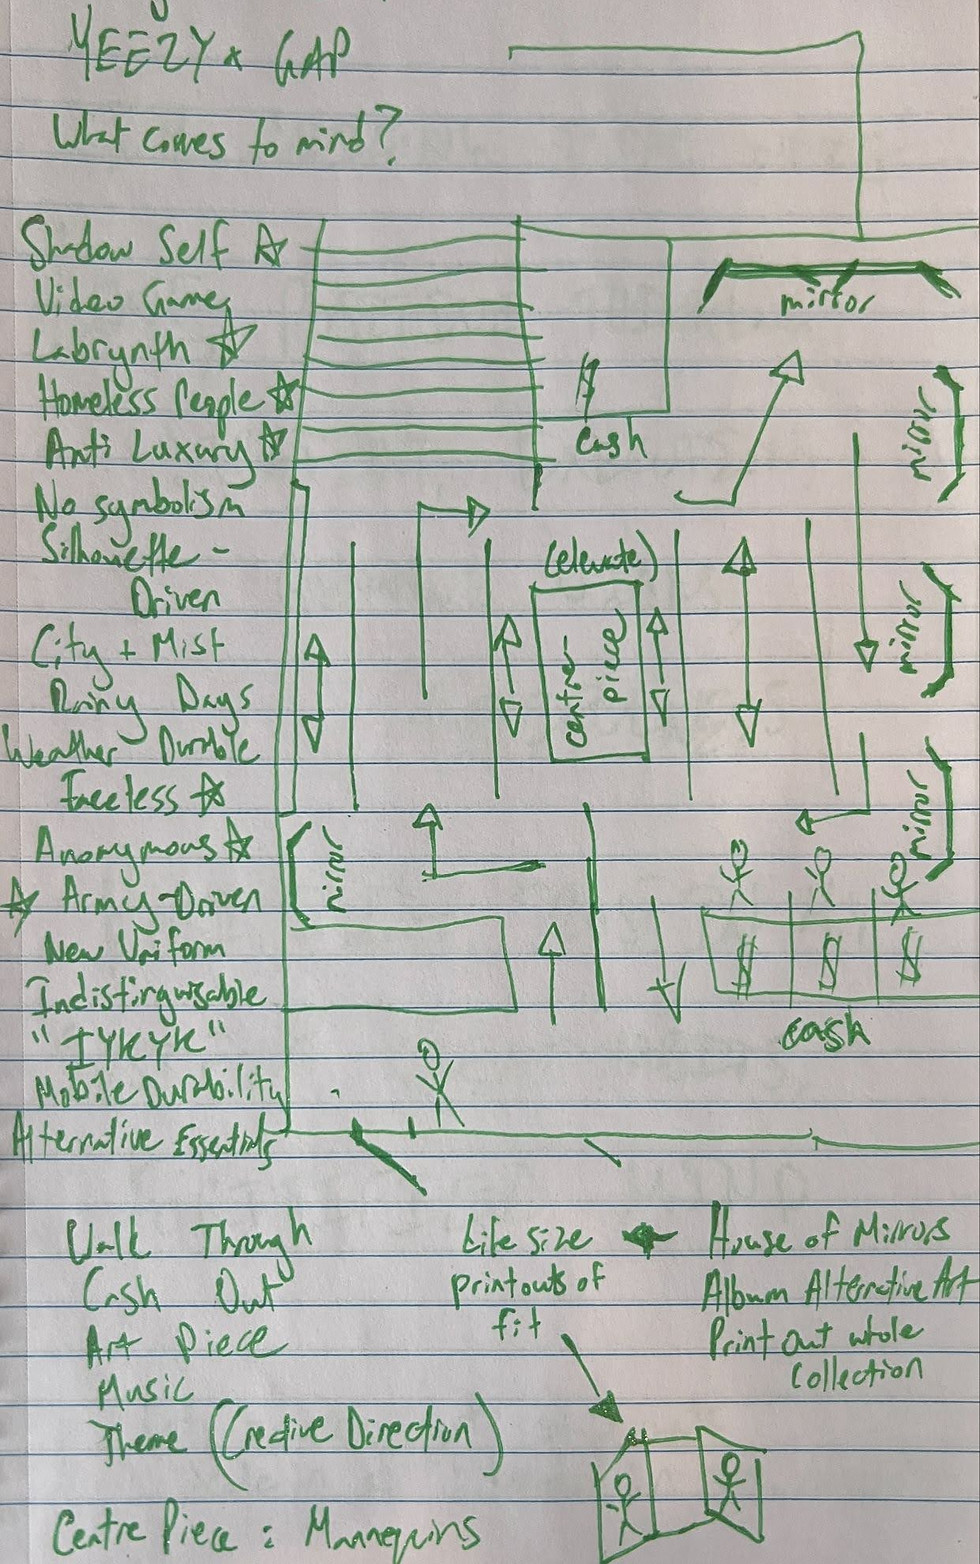 YEEZY x GAP
What comes to mind?
Shadow Self ☆
Video Games
Labrynth ☆
Homeless People ☆
Anti Luxury ☆
No symbolism
Silhouette -
Driven
City + Mist
Rainy Days
Weather Durable
Faceless ☆
Anonymous ☆
☆ Army-Driven
New Uniform
Indistinguisable
"IYKYK"
Mobile Durability
Alternative Essentials
mirror
$
Cash
mirror
(elevate)
centre
piece
mirror
mirror
mirror
$ $ $
cash
Walk Through
Cash Out
Art Piece
Music
Theme (Creative Direction)
Centre Piece : Mannequins
Life size
printouts of
fit
House of Mirrors
Album Alternative Art
Print out whole
collection